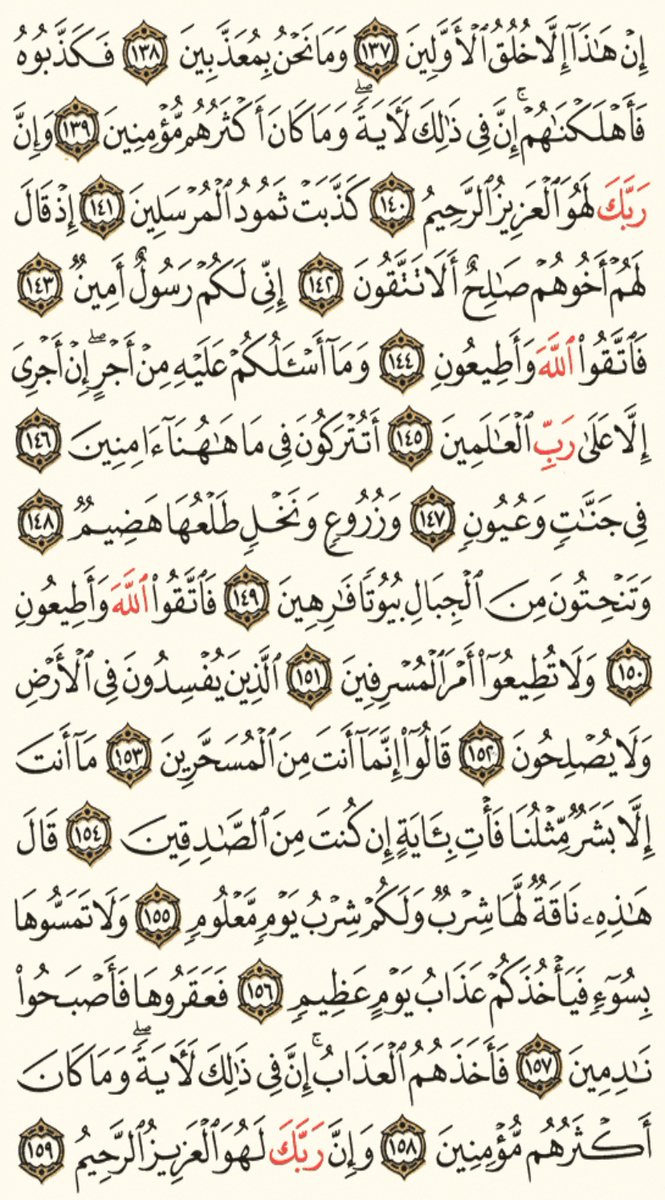 إِنْ هَٰذَآ إِلَّا خُلُقُ ٱلْأَوَّلِينَ ١٣٧ وَمَا نَحْنُ بِمُعَذَّبِينَ ١٣٨ فَكَذَّبُوهُ
فَأَهْلَكْنَٰهُمْ ۚ إِنَّ فِى ذَٰلِكَ لَأٓيَةً ۖ وَمَا كَانَ أَكْثَرُهُم مُّؤْمِنِينَ ١٣٩ وَإِنَّ
رَبَّكَ لَهُوَ ٱلْعَزِيزُ ٱلرَّحِيمُ ١٤٠ كَذَّبَتْ ثَمُودُ ٱلْمُرْسَلِينَ ١٤١ إِذْ قَالَ
لَهُمْ أَخُوهُمْ صَٰلِحٌ أَلَا تَتَّقُونَ ١٤٢ إِنِّى لَكُمْ رَسُولٌ أَمِينٌ ١٤٣
فَٱتَّقُوا۟ ٱللَّهَ وَأَطِيعُونِ ١٤٤ وَمَآ أَسْـَٔلُكُمْ عَلَيْهِ مِنْ أَجْرٍ ۖ إِنْ أَجْرِىَ
إِلَّا عَلَىٰ رَبِّ ٱلْعَٰلَمِينَ ١٤٥ أَتُتْرَكُونَ فِى مَا هَٰهُنَآ ءَامِنِينَ ١٤٦
فِى جَنَّٰتٍ وَعُيُونٍ ١٤٧ وَزُرُوعٍ وَنَخْلٍ طَلْعُهَا هَضِيمٌ ١٤٨
وَتَنْحِتُونَ مِنَ ٱلْجِبَالِ بُيُوتًا فَٰرِهِينَ ١٤٩ فَٱتَّقُوا۟ ٱللَّهَ وَأَطِيعُونِ
١٥٠ وَلَا تُطِيعُوٓا۟ أَمْرَ ٱلْمُسْرِفِينَ ١٥١ ٱلَّذِينَ يُفْسِدُونَ فِى ٱلْأَرْضِ
وَلَا يُصْلِحُونَ ١٥٢ قَالُوٓا۟ إِنَّمَآ أَنتَ مِنَ ٱلْمُسَحَّرِينَ ١٥٣ مَآ أَنتَ
إِلَّا بَشَرٌ مِّثْلُنَا فَأْتِ بِـَٔايَةٍ إِن كُنتَ مِنَ ٱلصَّٰدِقِينَ ١٥٤ قَالَ
هَٰذِهِۦ نَاقَةٌ لَّهَا شِرْبٌ وَلَكُمْ شِرْبُ يَوْمٍ مَّعْلُومٍ ١٥٥ وَلَا تَمَسُّوهَا
بِسُوٓءٍ فَيَأْخُذَكُمْ عَذَابُ يَوْمٍ عَظِيمٍ ١٥٦ فَعَقَرُوهَا فَأَصْبَحُوا۟
نَٰدِمِينَ ١٥٧ فَأَخَذَهُمُ ٱلْعَذَابُ ۚ إِنَّ فِى ذَٰلِكَ لَأٓيَةً ۖ وَمَا كَانَ
أَكْثَرُهُم مُّؤْمِنِينَ ١٥٨ وَإِنَّ رَبَّكَ لَهُوَ ٱلْعَزِيزُ ٱلرَّحِيمُ ١٥٩